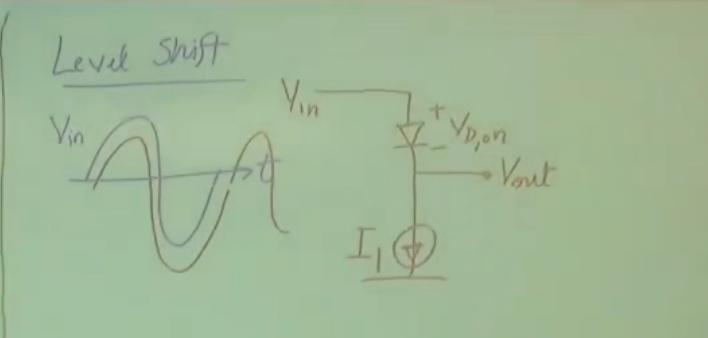 Level Shift
Vin
t
Vin
+
VD,on
-
Vout
I1